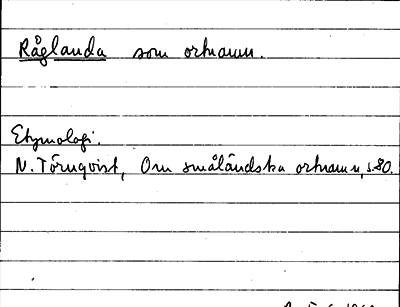 Råglanda som ortnamn.
Etymologi.
N. Törnqvist, Om småländska ortnamn, s. 80.